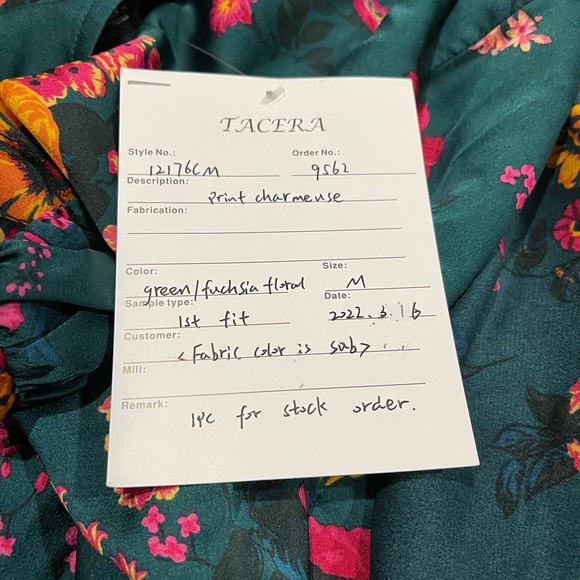 TACERA
Style No.: 12176CM Order No.: 9562
Description: Print charmeuse
Fabrication:
Color: green/fuchsia floral Size: M
Sample type: 1st fit Date: 2022.3.16
Customer: <Fabric color is sub>
Mill:
Remark: 1PC for stock order.